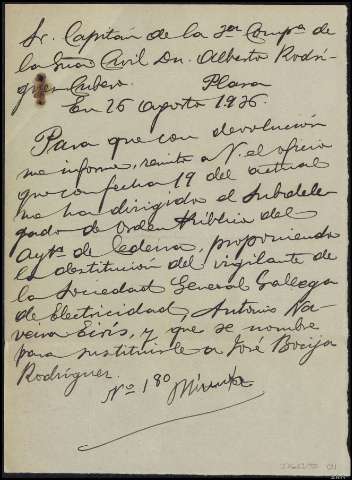 Sr. Capitán de la 3ª Compª de
la Gua Civil Dn. Alberto Rodrí-
guez Cubero. Plaza
En 26 agosto 1936.
Para que con devolución
me informe, remito a V. el oficio
que con fecha 19 del actual
me ha dirigido el Subdele-
gado de Orden Público del
Aytº de Cedeira, proponiendo
la destitución del vigilante de
la Sociedad General Gallega
de Electricidad, Antonio Na-
veira Eiris, y que se nombre
para sustituirle a José Bocija
Rodríguez.
Nº 180